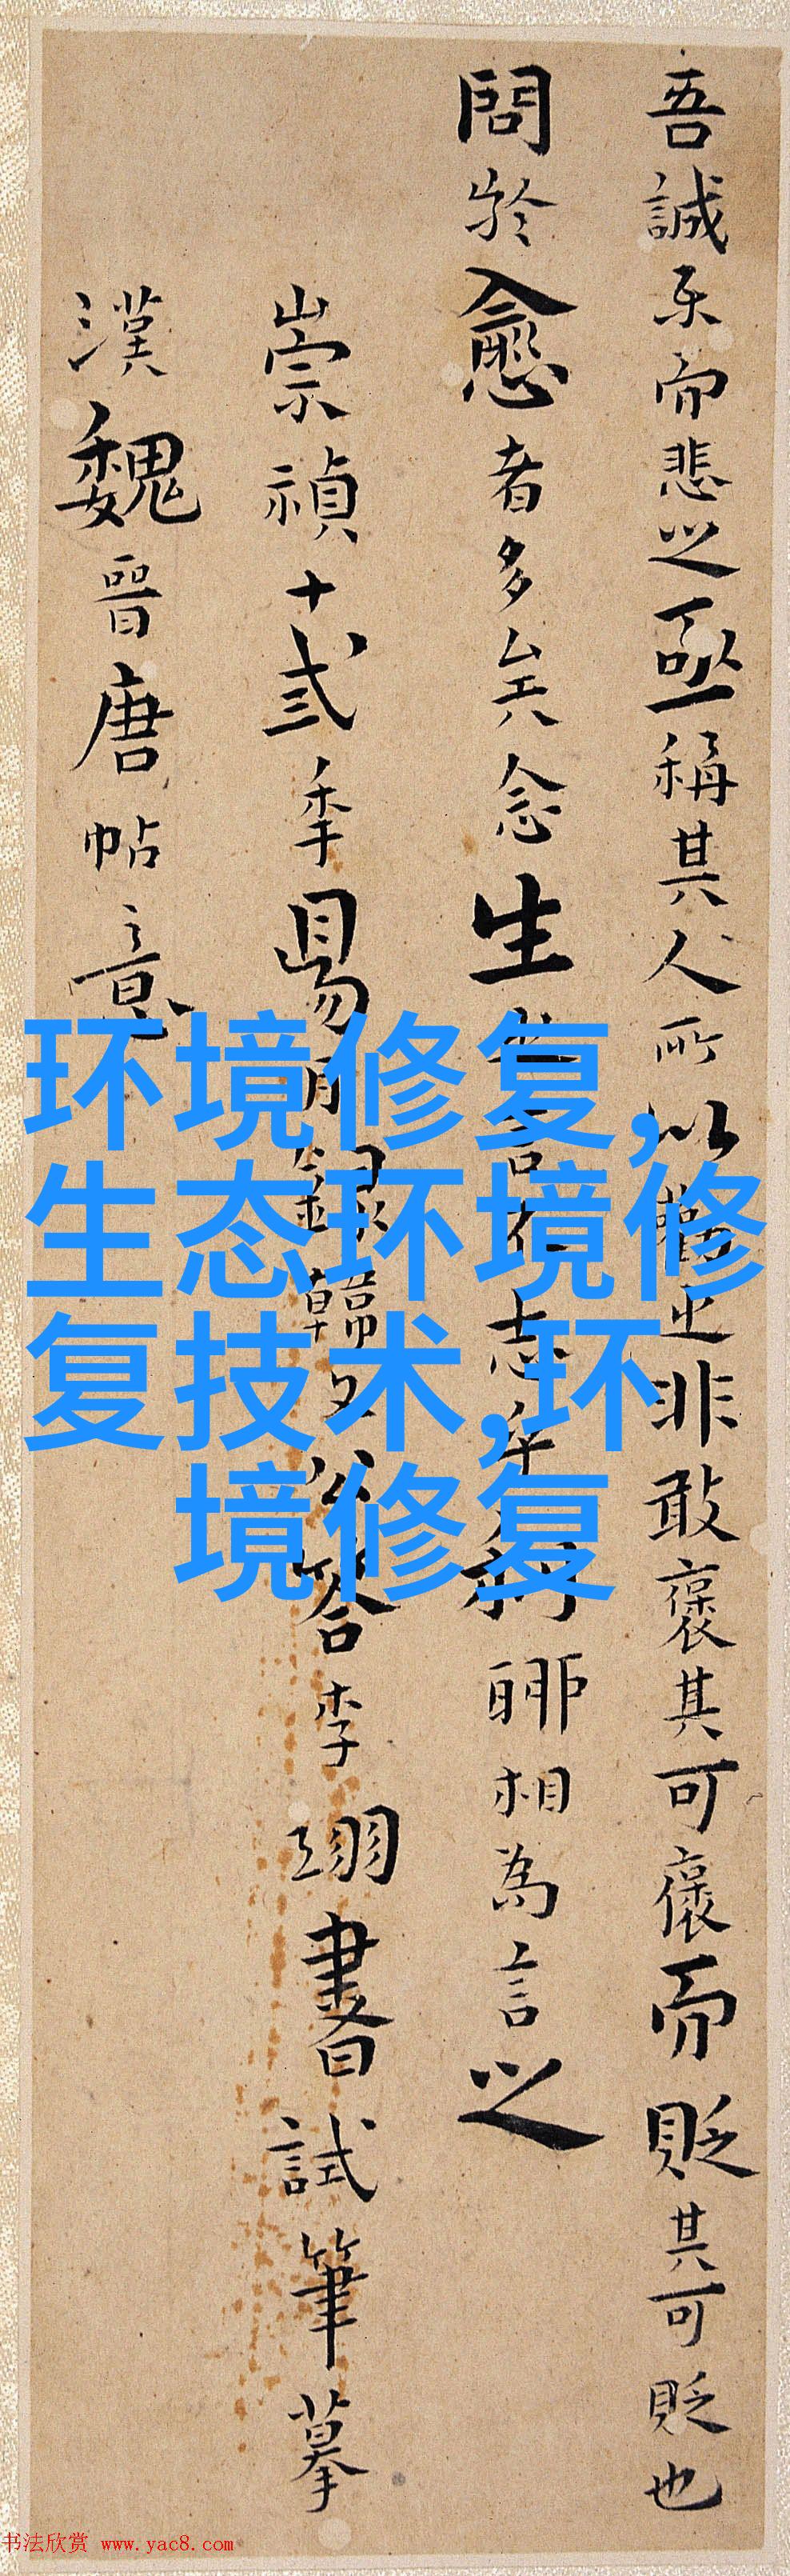 吾誠樂而悲之亟稱其人所以勸之非敢褒其可褒而貶其可貶也
問於愈者多矣念生之言不志乎利聊相為言之
崇禎十弍季易月錄韓文公答李翊書試筆摹
漢魏晉唐帖意
环境修复,
生态环境修
复技术,环
境修复
书法欣赏 www.yac8.com